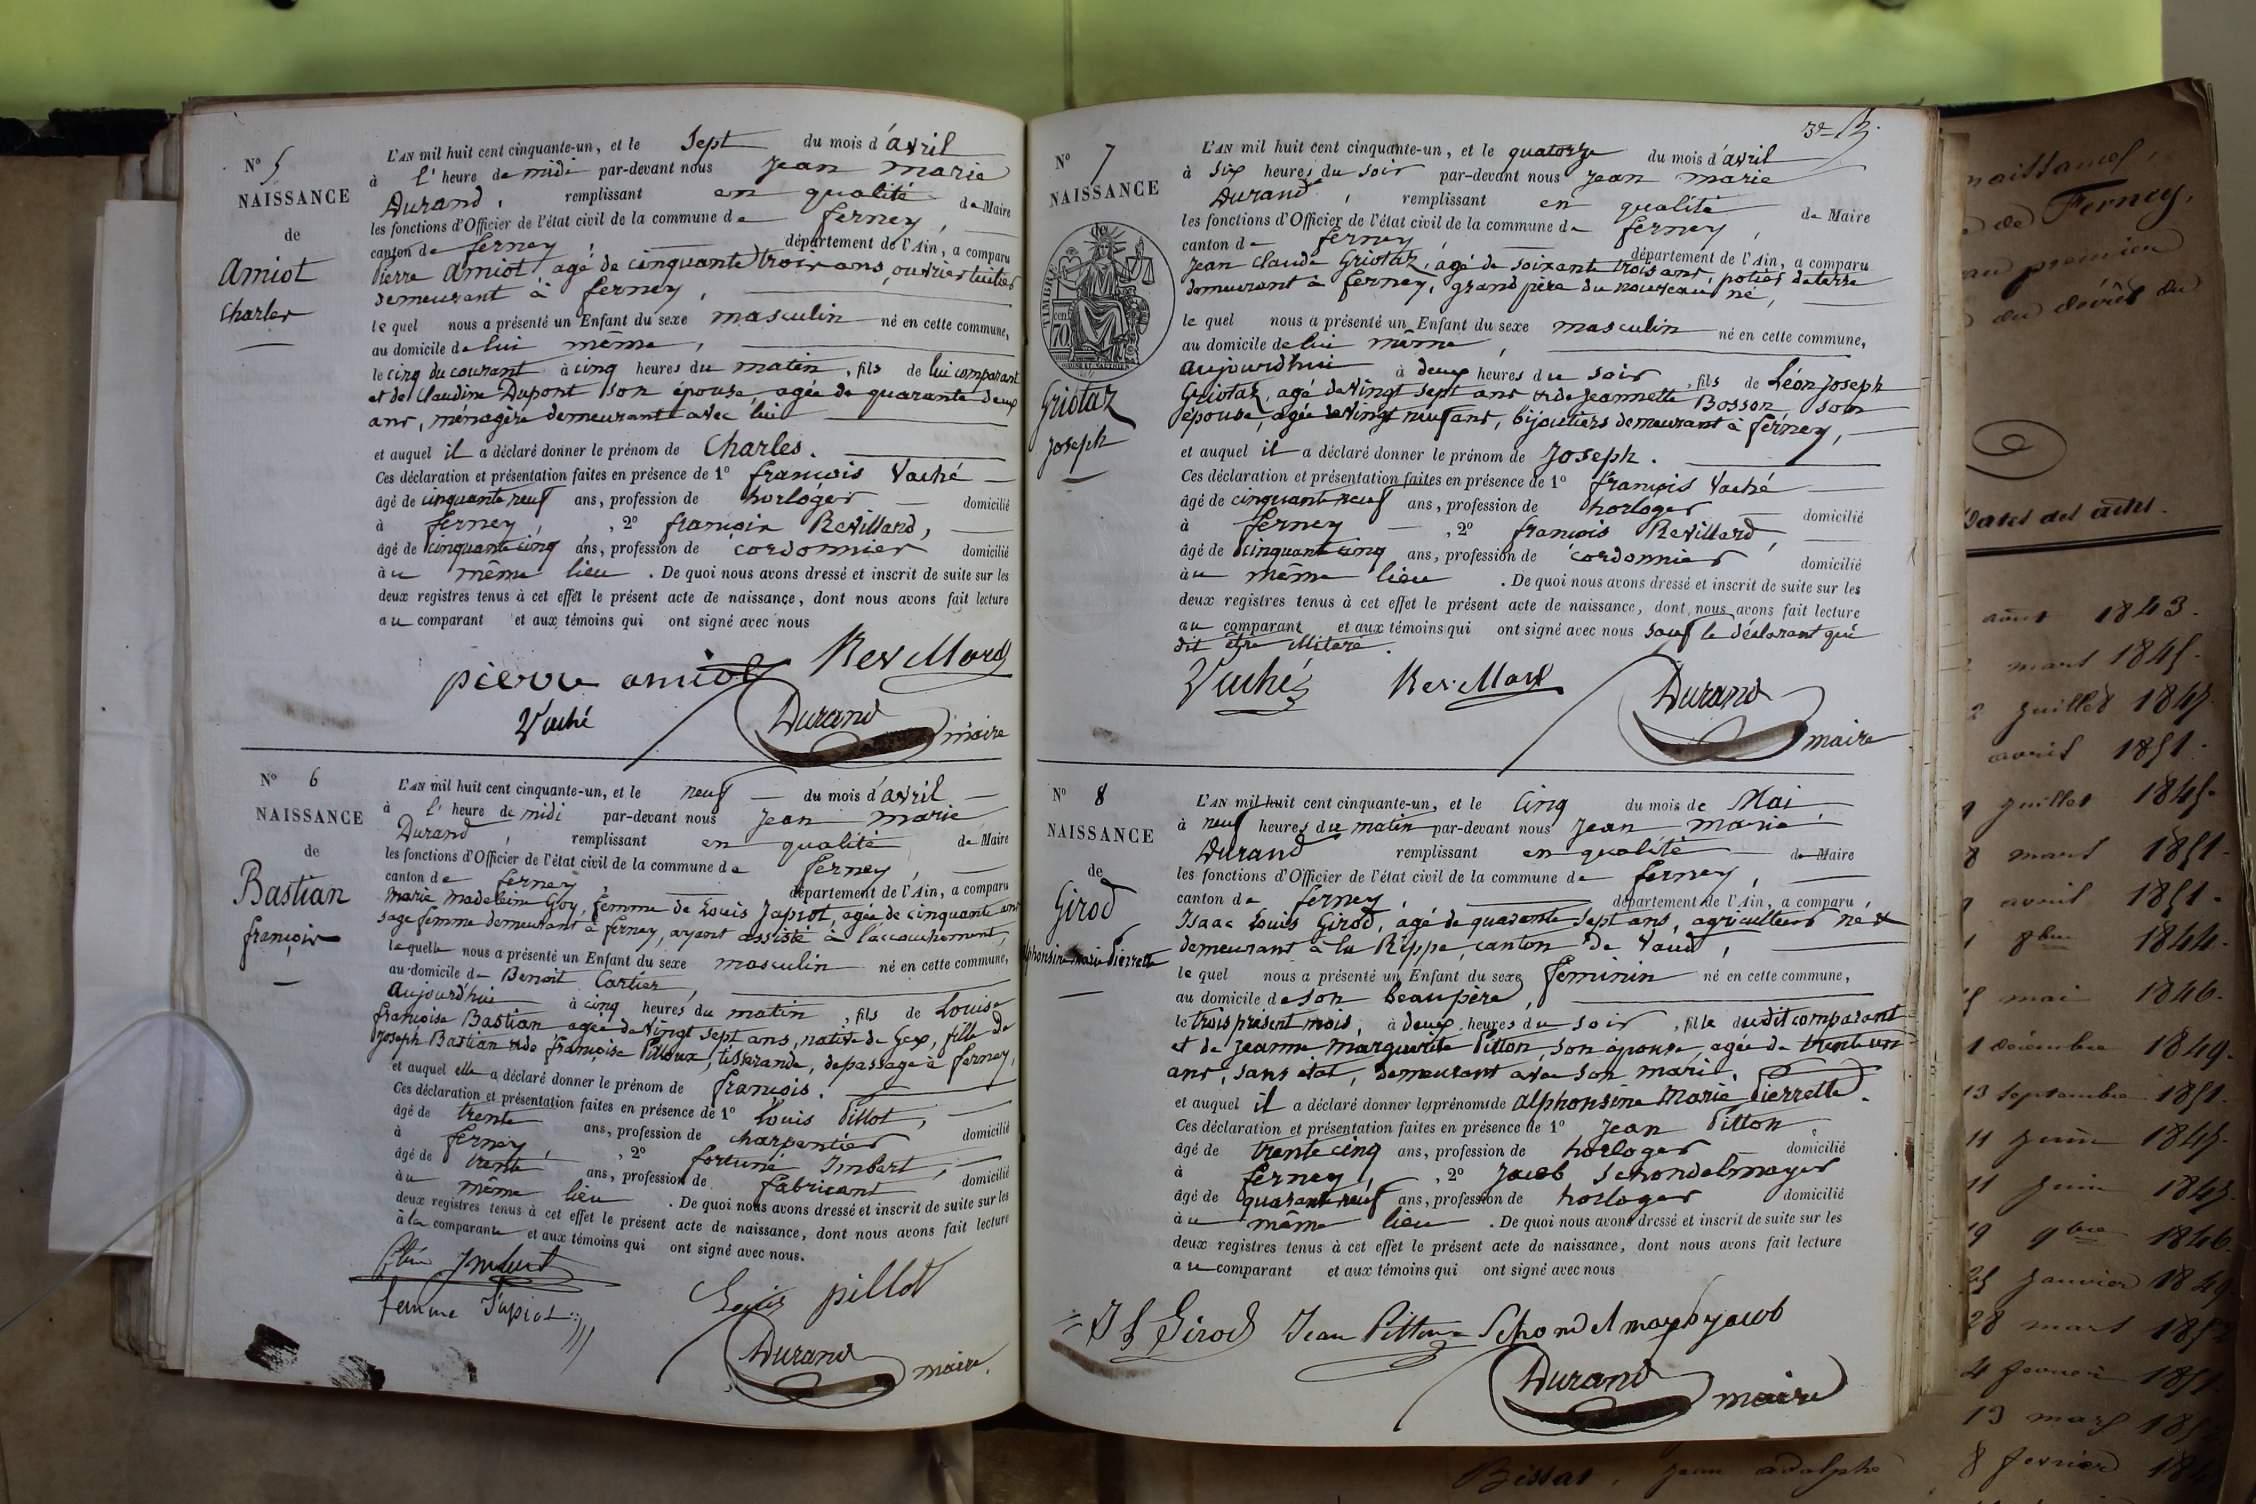 N° 5
NAISSANCE
de
Amiot
Charles
L'AN mil huit cent cinquante-un, et le Sept du mois d'avril
à l'heure de midi par-devant nous Jean Marie
Durand, remplissant en qualité de Maire
les fonctions d'Officier de l'état civil de la commune de ferney,
canton de ferney, département de l'Ain, a comparu
Pierre Amiot, agé de cinquante trois ans, ouvrier tuilier
demeurant à ferney,
lequel nous a présenté un Enfant du sexe masculin né en cette commune,
au domicile de lui même,
le cinq du courant à cinq heures du matin, fils de lui comparant
et de Claudine Dupont son épouse, agée de quarante deux
ans, ménagère demeurant avec lui
et auquel il a déclaré donner le prénom de Charles.
Ces déclaration et présentation faites en présence de 1° françois Vaché
âgé de cinquante neuf ans, profession de horloger domicilié
à ferney, 2° françois Revillard,
âgé de cinquante cinq ans, profession de cordonnier domicilié
au même lieu. De quoi nous avons dressé et inscrit de suite sur les
deux registres tenus à cet effet le présent acte de naissance, dont nous avons fait lecture
au comparant et aux témoins qui ont signé avec nous
pierre amiot Revillard
Vaché Durand maire
N° 6
NAISSANCE
de
Bastian
françois
L'AN mil huit cent cinquante-un, et le neuf du mois d'avril
à l'heure de midi par-devant nous Jean Marie
Durand, remplissant en qualité de Maire
les fonctions d'Officier de l'état civil de la commune de ferney,
canton de ferney, département de l'Ain, a comparu
Marie Madeleine Goy, femme de Louis Japiot, agée de cinquante ans
sage femme demeurant à ferney, ayant assisté à l'accouchement,
laquelle nous a présenté un Enfant du sexe masculin né en cette commune,
au domicile de Benoit Cartier,
aujourd'hui à cinq heures du matin, fils de Louise
françoise Bastian agée de vingt sept ans, native de Gex, fille de
Joseph Bastian & de françoise Pilloux, tisserande, de passage à ferney,
et auquel elle a déclaré donner le prénom de françois.
Ces déclaration et présentation faites en présence de 1° Louis Pillot,
âgé de trente ans, profession de charpentier domicilié
à ferney, 2° fortuné Imbert,
âgé de trente ans, profession de fabricant domicilié
au même lieu. De quoi nous avons dressé et inscrit de suite sur les
deux registres tenus à cet effet le présent acte de naissance, dont nous avons fait lecture
à la comparante et aux témoins qui ont signé avec nous.
Imbert
femme Japiot Louis pillot
Durand maire.
N° 7
NAISSANCE
de
TIMBRE
70
Griotaz
Joseph
L'AN mil huit cent cinquante-un, et le quatorze du mois d'avril
à six heures du soir par-devant nous Jean Marie
Durand, remplissant en qualité de Maire
les fonctions d'Officier de l'état civil de la commune de ferney,
canton de ferney, département de l'Ain, a comparu
Jean Claude Griotaz, agé de soixante trois ans, potier de terre
demeurant à ferney, grand père du nouveau né,
lequel nous a présenté un Enfant du sexe masculin né en cette commune,
au domicile de lui même,
aujourd'hui à deux heures du soir, fils de Léon Joseph
Griotaz, agé de vingt sept ans & de Jeannette Bosson son
épouse, agée de vingt neuf ans, bijoutiers demeurant à ferney,
et auquel il a déclaré donner le prénom de Joseph.
Ces déclaration et présentation faites en présence de 1° françois Vaché
âgé de cinquante neuf ans, profession de horloger domicilié
à ferney, 2° françois Revillard,
âgé de cinquante cinq ans, profession de cordonnier domicilié
au même lieu. De quoi nous avons dressé et inscrit de suite sur les
deux registres tenus à cet effet le présent acte de naissance, dont nous avons fait lecture
au comparant et aux témoins qui ont signé avec nous sauf le déclarant qui
dit être illiteré.
Vaché Revillard Durand maire
N° 8
NAISSANCE
de
Girod
alphonsine marie Pierrette
L'AN mil huit cent cinquante-un, et le Cinq du mois de Mai
à neuf heures du matin par-devant nous Jean Marie
Durand remplissant en qualité de Maire
les fonctions d'Officier de l'état civil de la commune de ferney,
canton de ferney, département de l'Ain, a comparu
Isaac Louis Girod, agé de quarante sept ans, agriculteur né &
demeurant à la Rippe, canton de Vaud,
lequel nous a présenté un Enfant du sexe feminin né en cette commune,
au domicile de son beau père,
le trois présent mois, à deux heures du soir, fille dudit comparant
et de Jeanne Marguerite Pitton, son épouse, agée de trente un
ans, sans état, demeurant avec son mari.
et auquel il a déclaré donner les prénoms de alphonsine Marie Pierrette.
Ces déclaration et présentation faites en présence de 1° Jean Pitton,
âgé de trente cinq ans, profession de horloger domicilié
à ferney, 2° Jacob Schondelmayer
âgé de quarante neuf ans, profession de horloger domicilié
au même lieu. De quoi nous avons dressé et inscrit de suite sur les
deux registres tenus à cet effet le présent acte de naissance, dont nous avons fait lecture
au comparant et aux témoins qui ont signé avec nous
I L Girod Jean Pitton Schondelmayer jacob
Durand maire
naissances,
de Ferney,
au premier
du décès du
Dates des actes.
août 1843.
mars 1845.
juillet 1845.
avril 1851.
juillet 1845.
8 mars 1851.
avril 1851.
8bre 1844.
mai 1846.
1 décembre 1849.
13 septembre 1851.
11 juin 1845.
11 juin 1845.
19 9bre 1846.
janvier 1849.
28 mars 1852
4 fevrier 1851.
13 mars
8 fevrier
Bissat, Jean adolphe